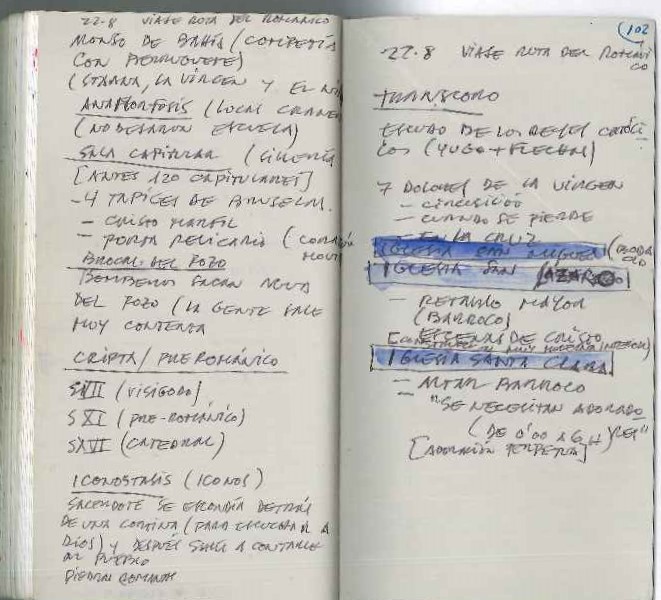 22-8 VIAJE RUTA DEL ROMÁNICO
DE BAHÍA (COMPETÍA
CON BERRUGUETE)
(STA ANA, LA VIRGEN Y EL NIÑO
ANAMORFOSIS (LOCAL
(NO DEJARON ESCUELA)
SALA CAPITULAR (SILLERÍA
[ANTES 120 CAPITULARES]
- 4 TAPICES DE BRUSELAS.
- CRISTO MARFIL
- PORTA RELICARIO (
BROCAL DEL POZO
BOMBEROS SACAN AGUA
DEL POZO (LA GENTE SALE
MUY CONTENTA
CRIPTA / PRE ROMÁNICO
S VII (VISIGODO)
S XI (PRE-ROMÁNICO)
S XVI (CATEDRAL)
ICONOSTASIS (ICONOS)
SACERDOTE SE ESCONDÍA DETRÁS
DE UNA CORTINA (PARA ESCUCHAR A
DIOS) Y DESPUÉS SALÍA A CONTARLE
AL PUEBLO
102
22-8 VIAJE RUTA DEL ROMÁNI
CO
TRANSCORO
ESCUDO DE LOS REYES CATÓLI-
COS (YUGO + FLECHAS)
7 DOLORES DE LA VIRGEN
- CIRCUSICIÓ
- CUANDO SE PIERDE
- EN LA CRUZ
IGLESIA SAN MIGUEL
IGLESIA SAN LÁZARO
- RETABLO MAYOR
(BARROCO)
ESCENAS DE CRISTO
IGLESIA SANTA CLARA
- ALTAR BARROCO
- "SE NECESITAN ADORADO
(DE 0'00 A 6 H) RES"
[ADORACIÓN PERPETUA]